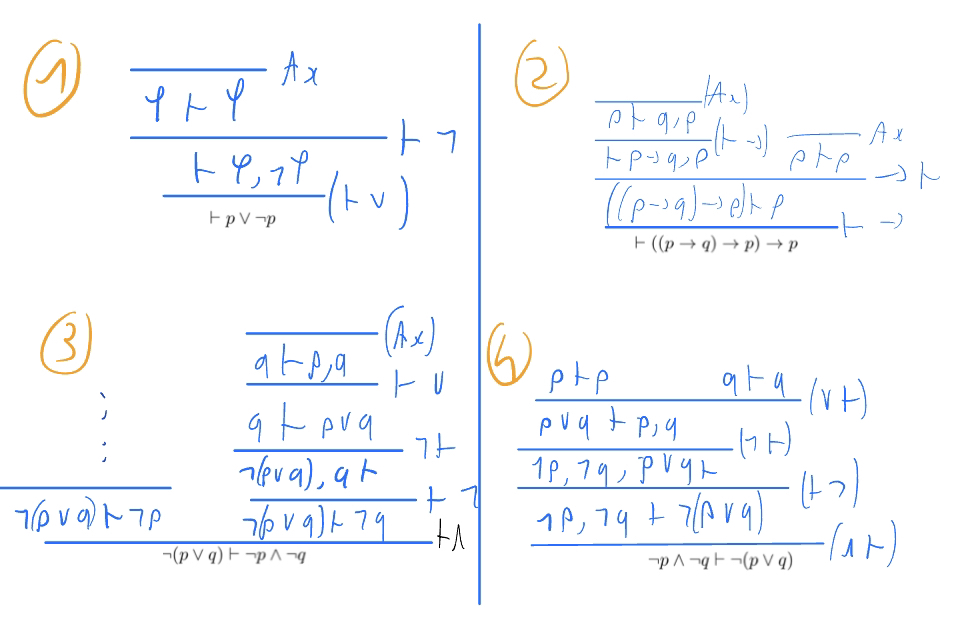 1
Ax
φ ⊢ φ
⊢ ¬
⊢ φ, ¬φ
(⊢ ∨)
⊢ p ∨ ¬p
2
(Ax)
p ⊢ q, p
(⊢ →)
⊢ p → q, p
Ax
p ⊢ p
→ ⊢
((p → q) → p) ⊢ p
⊢ →
⊢ ((p → q) → p) → p
3
(Ax)
q ⊢ p, q
⊢ ∨
q ⊢ p ∨ q
¬ ⊢
¬(p ∨ q), q ⊢
⊢ ¬
¬(p ∨ q) ⊢ ¬p
¬(p ∨ q) ⊢ ¬q
⊢ ∧
¬(p ∨ q) ⊢ ¬p ∧ ¬q
4
p ⊢ p q ⊢ q
(∨ ⊢)
p ∨ q ⊢ p, q
(¬ ⊢)
¬p, ¬q, p ∨ q ⊢
(⊢ ¬)
¬p, ¬q ⊢ ¬(p ∨ q)
(∧ ⊢)
¬p ∧ ¬q ⊢ ¬(p ∨ q)